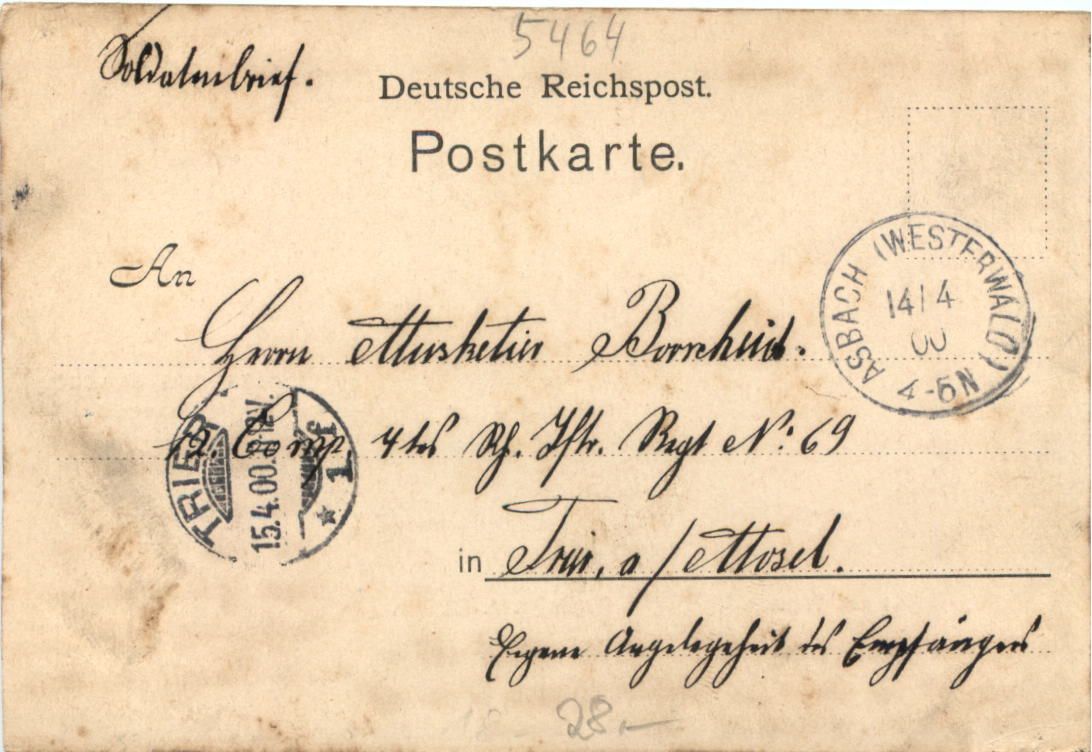 5464
Soldatenbrief.
Deutsche Reichspost.
Postkarte.
ASBACH (WESTERWALD)
14/4
00
4-5N
An
Herrn Musketier
12. Comp 4tes Rh. Iftr. Regt No: 69
TRIER
15.4.00.
* 1 f
in Trier, a/Mosel.
Eigene Angelegenheit des Empfängers
28.-